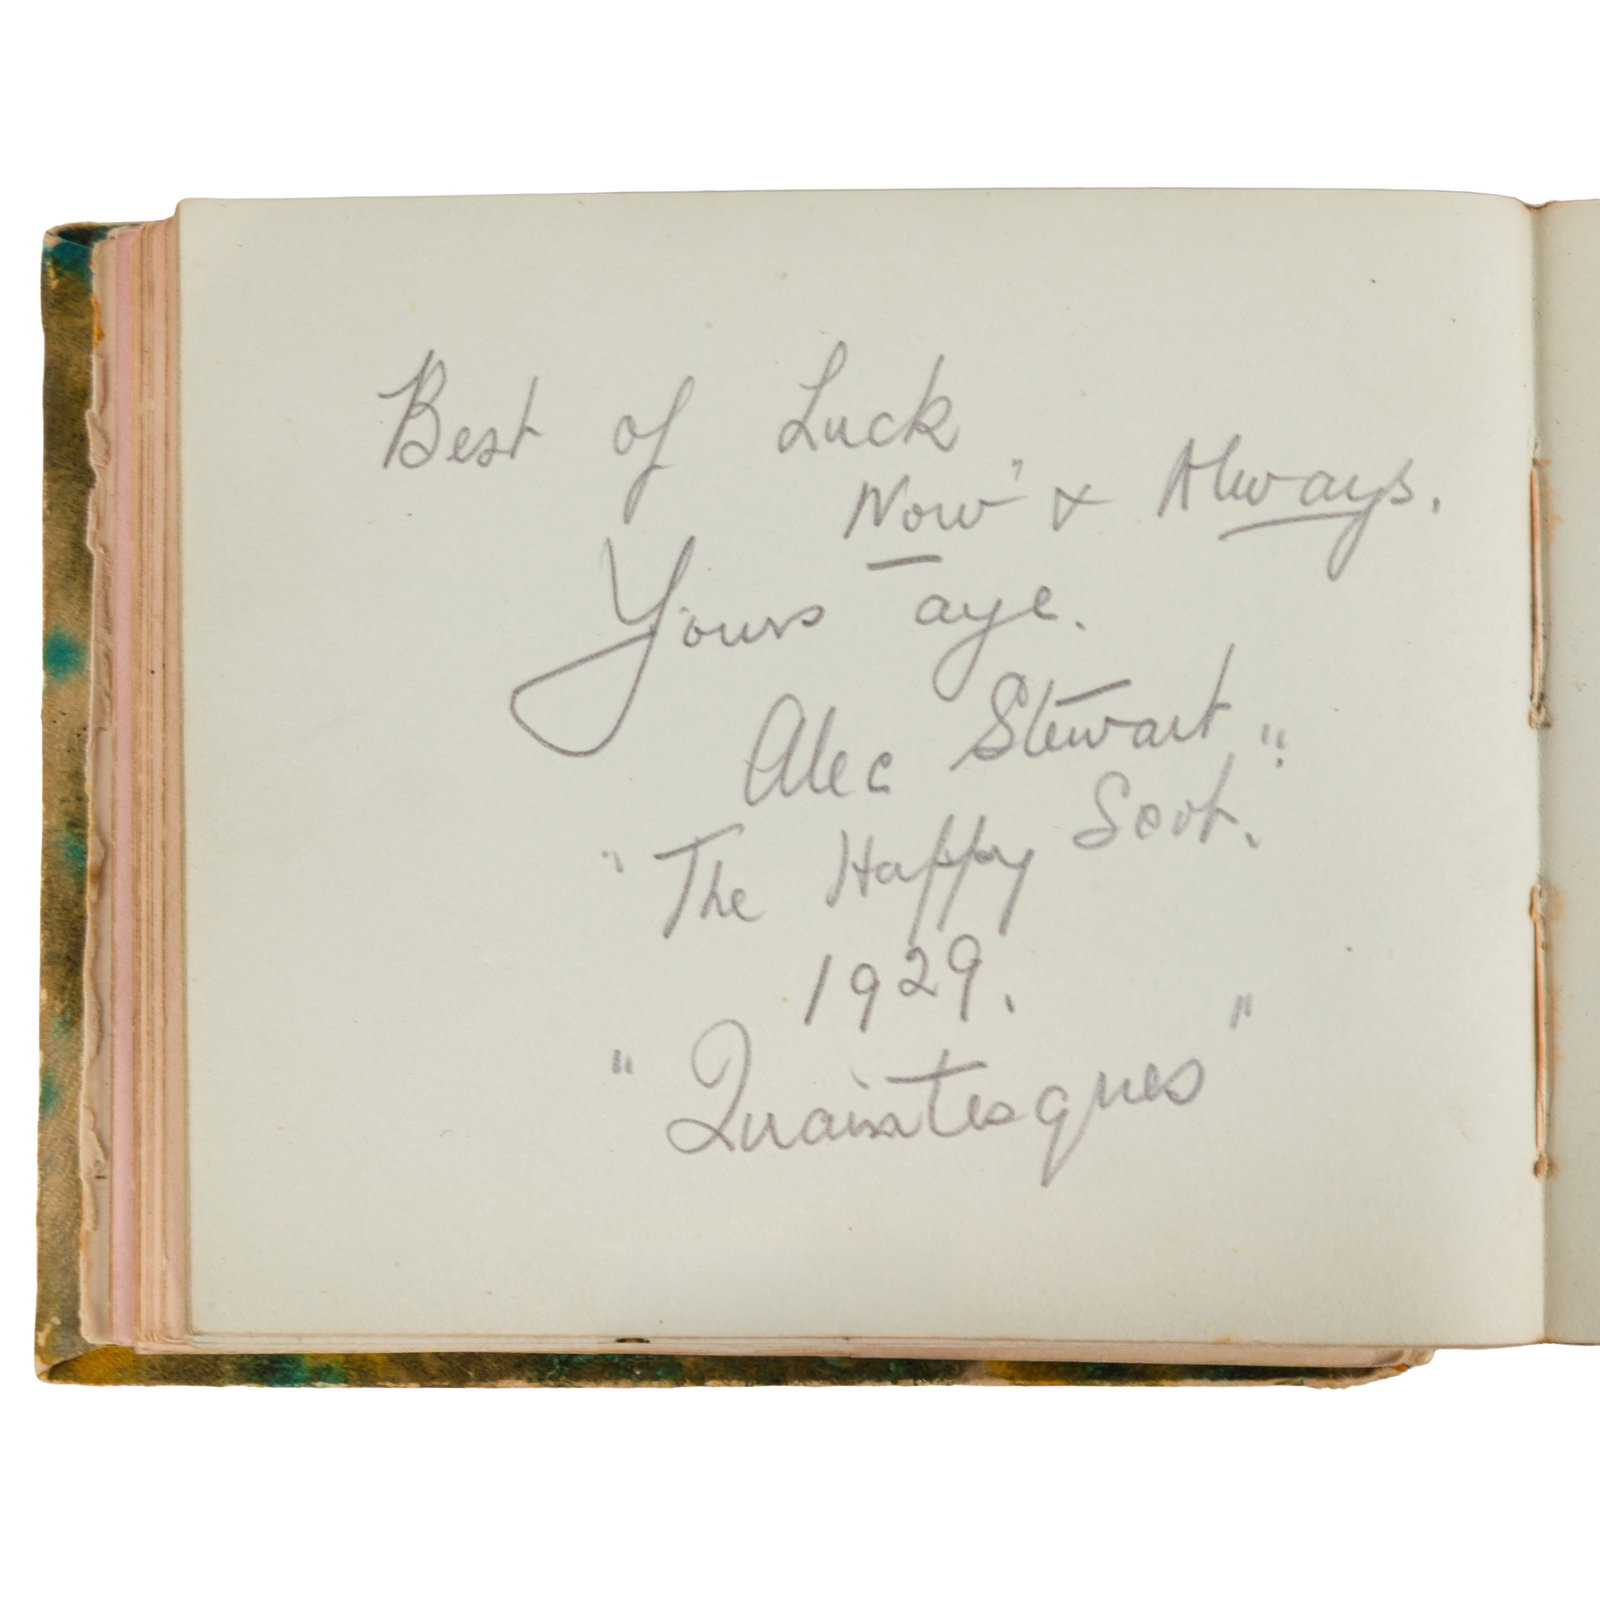 Best of Luck
Now & Always.
Yours aye.
Alec Stewart
"The Happy Scot."
1929.
"Quaintesques"